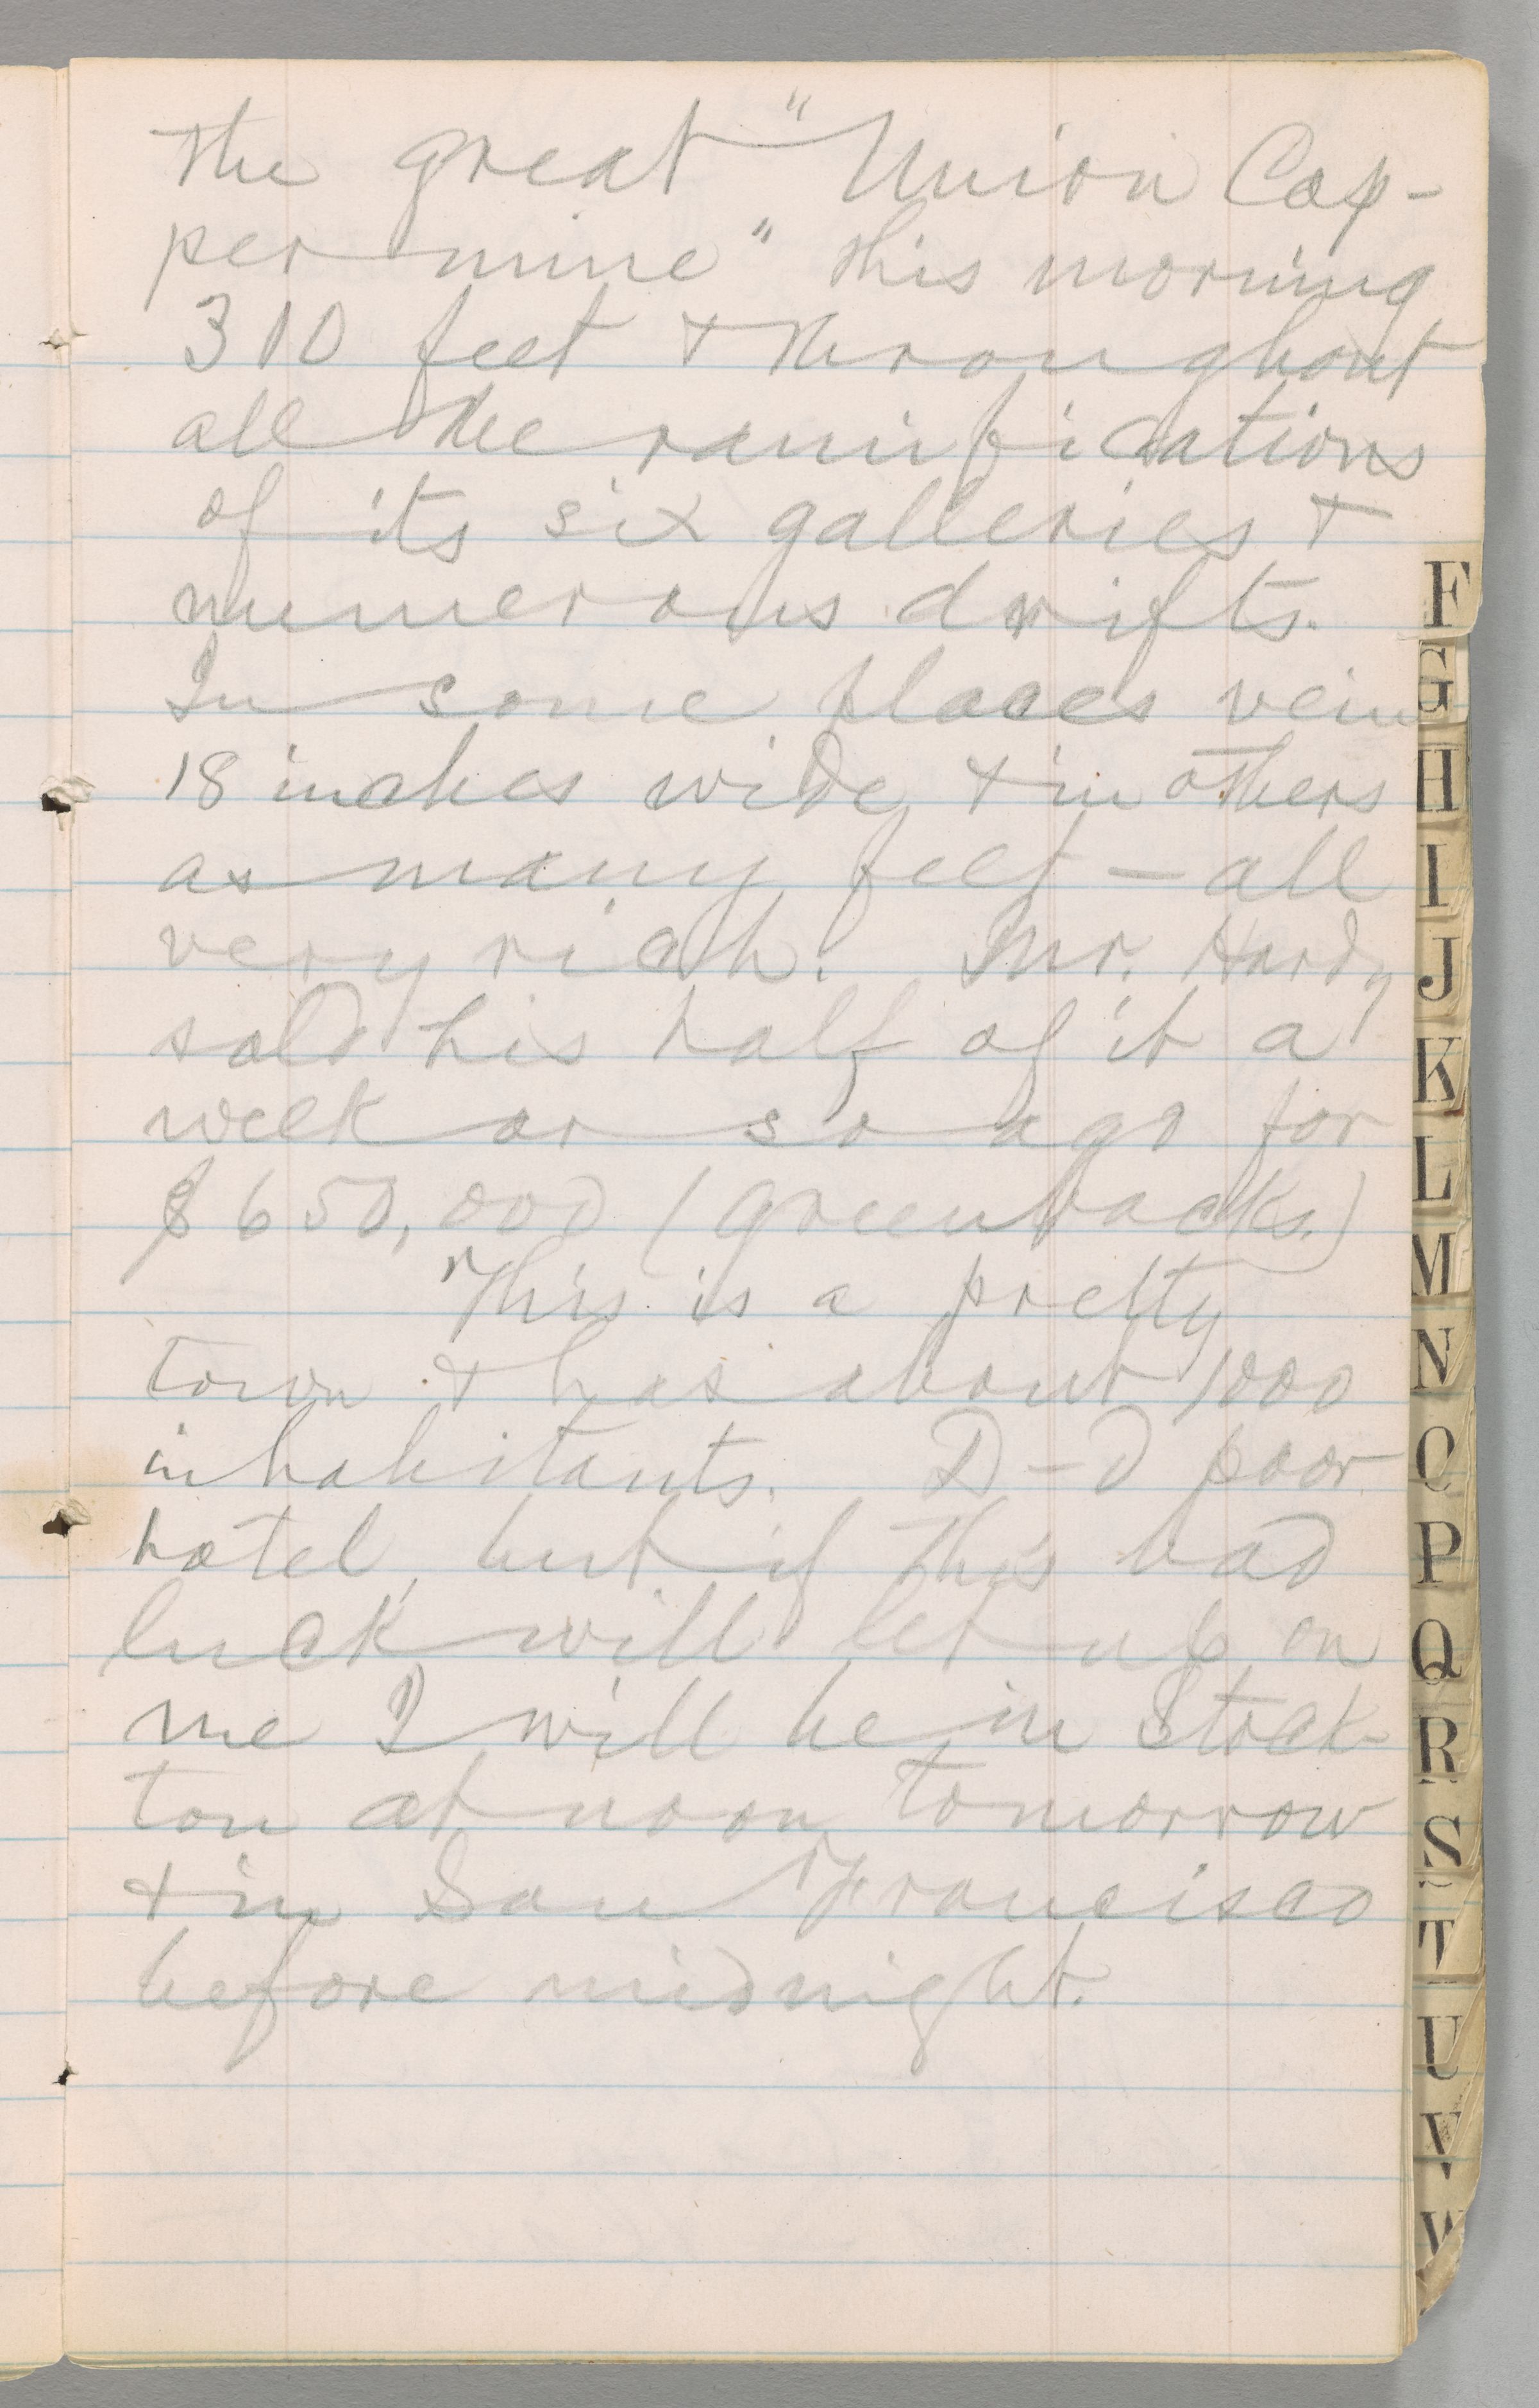 the great "Union Cop-
per mine" this morning
310 feet & throughout
all the ramifications
of its six galleries &
numerous drifts.
In some places vein
18 inches wide, & in others
as many feet — all
very rich. Mr. Hardy
sold his half of it a
week or so ago for
$650,000 (greenbacks.)
This is a pretty
town & has about 1000
inhabitants. D—d poor
hotel, but if this bad
luck will let up on
me I will be in Stock-
ton at noon tomorrow
& in San Francisco
before midnight.
F
G
H
I
J
K
L
M
N
O
P
Q
R
S
T
U
V
W